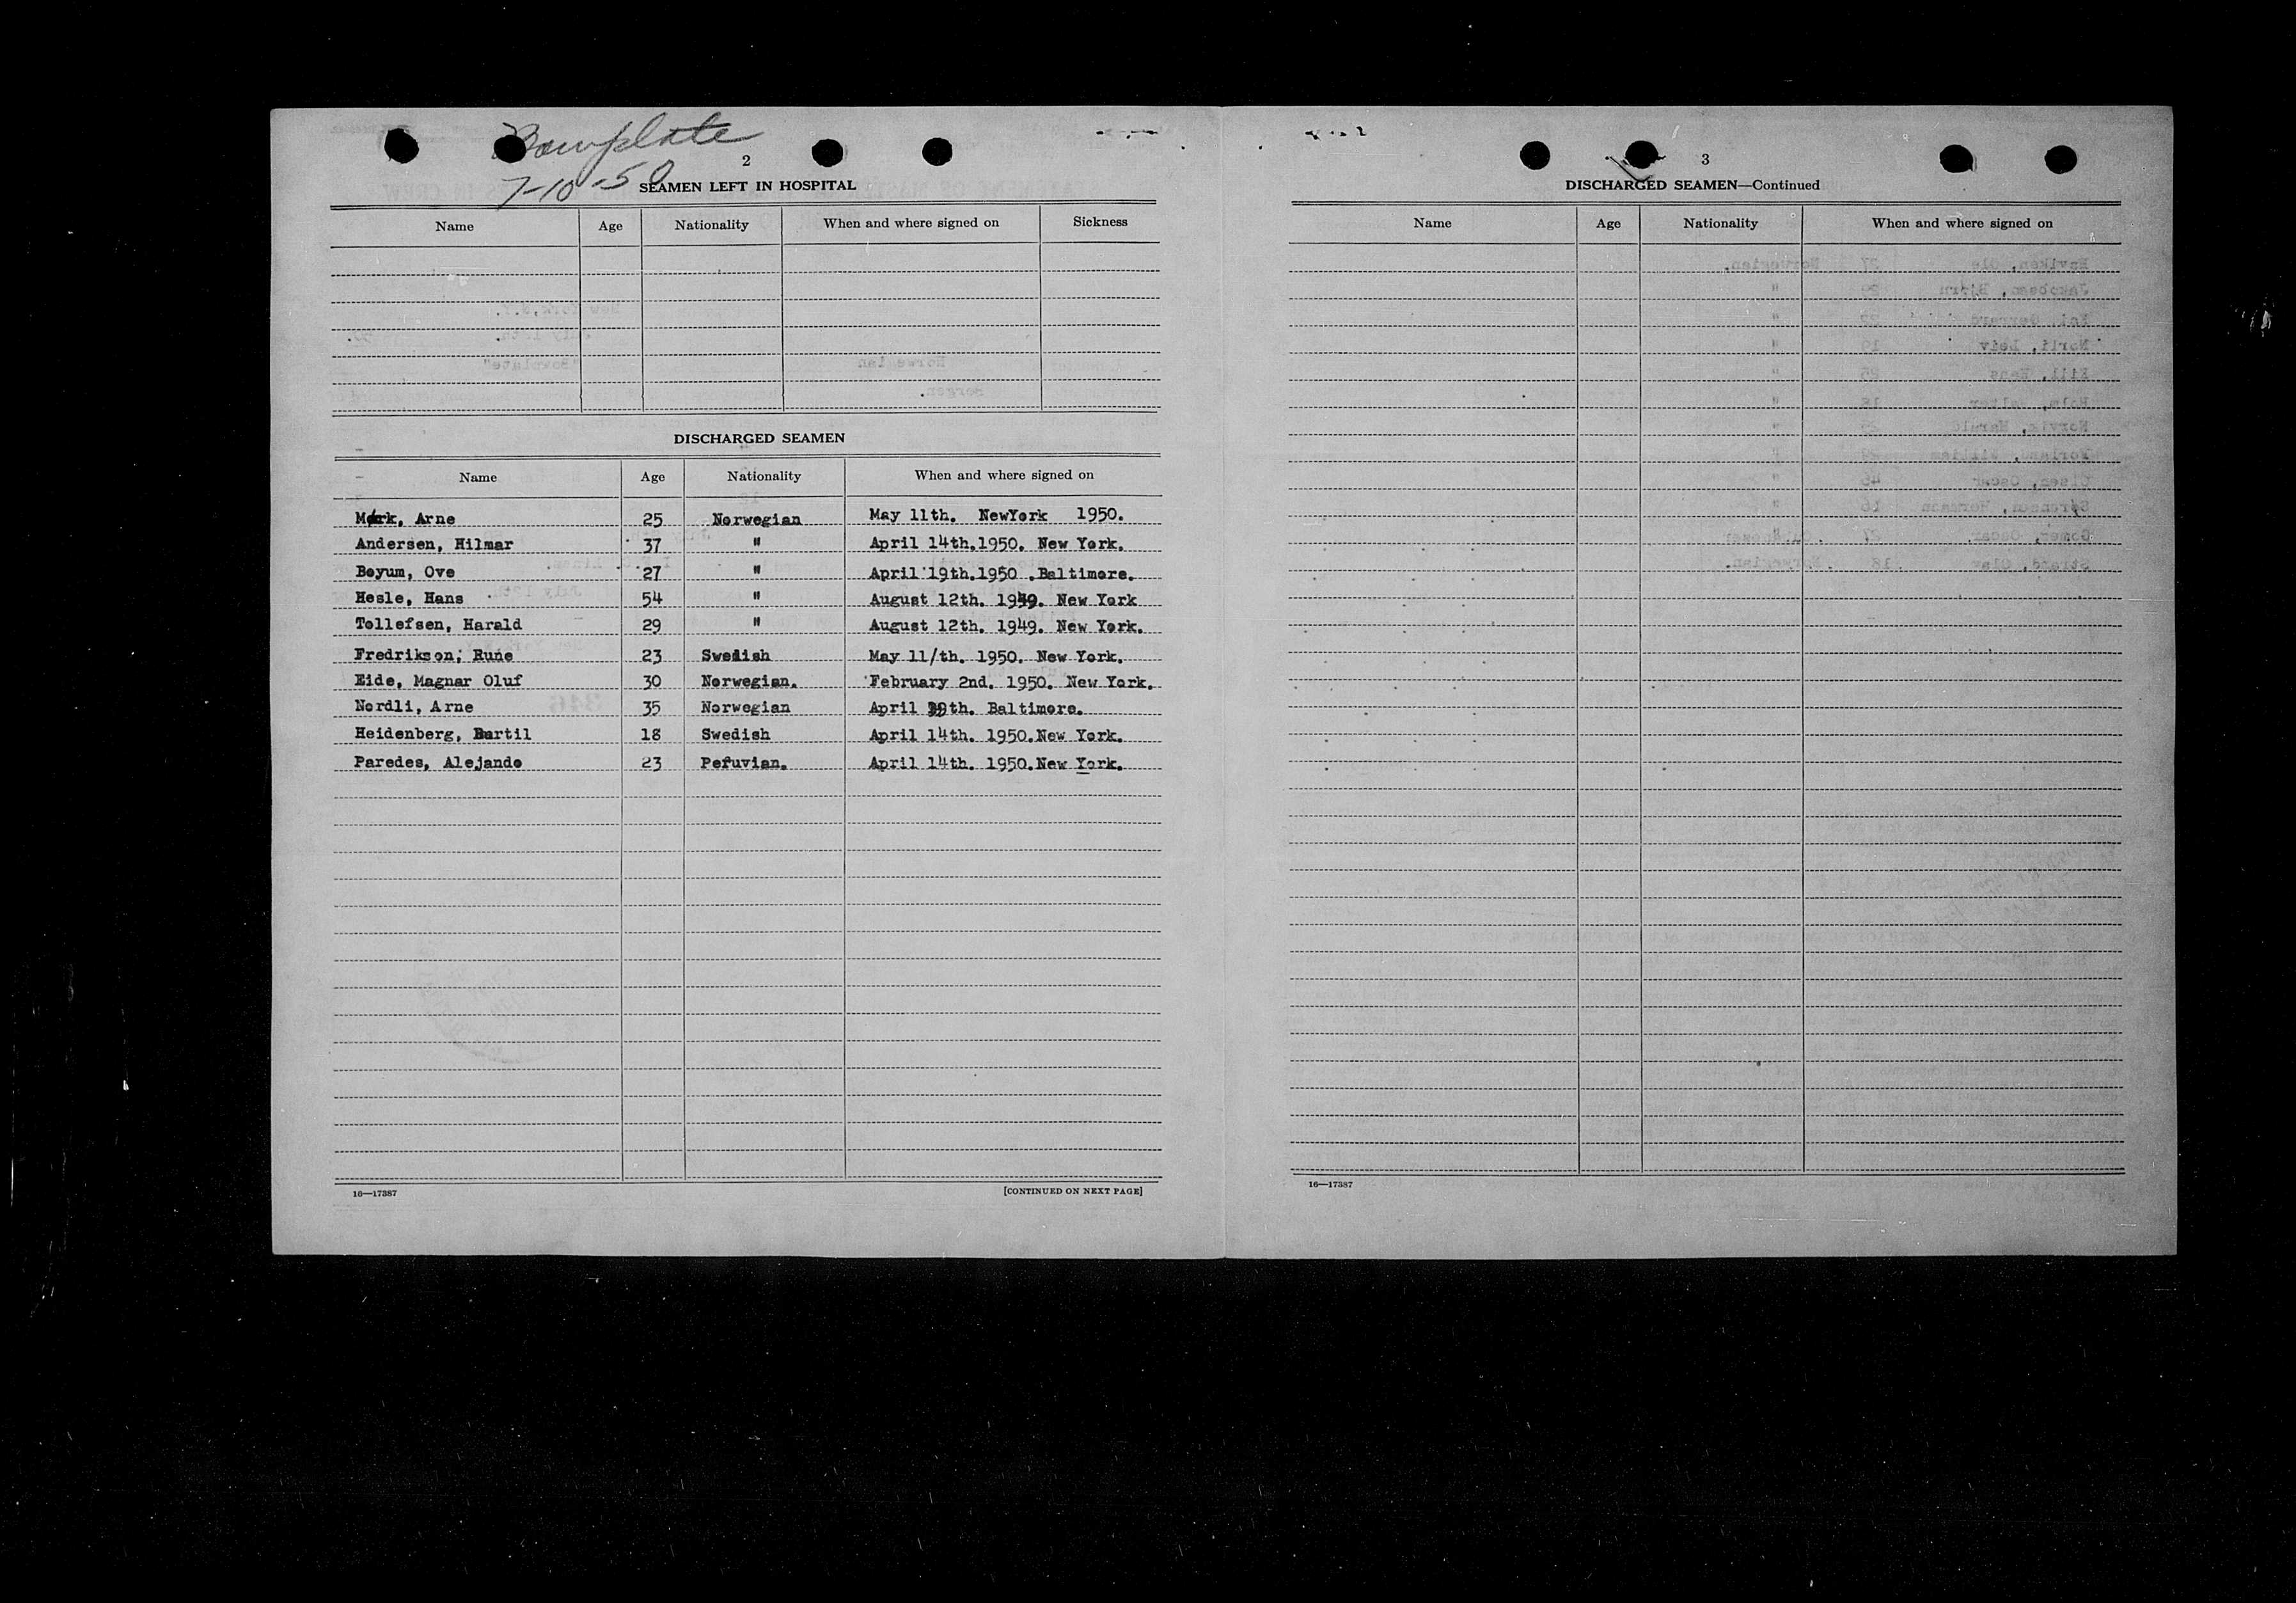 2
7-10-50
SEAMEN LEFT IN HOSPITAL
Name Age Nationality When and where signed on Sickness
DISCHARGED SEAMEN
Name Age Nationality When and where signed on
Mørk, Arne 25 Norwegian May 11th. NewYork 1950.
Andersen, Hilmar 37 " April 14th.1950. New York.
Boyum, Ove 27 " April 19th.1950 .Baltimore.
Hesle, Hans 54 " August 12th. 1949. New York
Tollefsen, Harald 29 " August 12th. 1949. New York.
Fredrikson, Rune 23 Swedish May 11/th. 1950. New York.
Eide, Magnar Oluf 30 Norwegian. February 2nd. 1950. New York.
Nordli, Arne 35 Norwegian April th. Baltimore.
Heidenberg, Bertil 18 Swedish April 14th. 1950.New York.
Paredes, Alejando 23 Pefuvian. April 14th. 1950.New York.
16—17387 [CONTINUED ON NEXT PAGE]
3
DISCHARGED SEAMEN—Continued
Name Age Nationality When and where signed on
16—17387